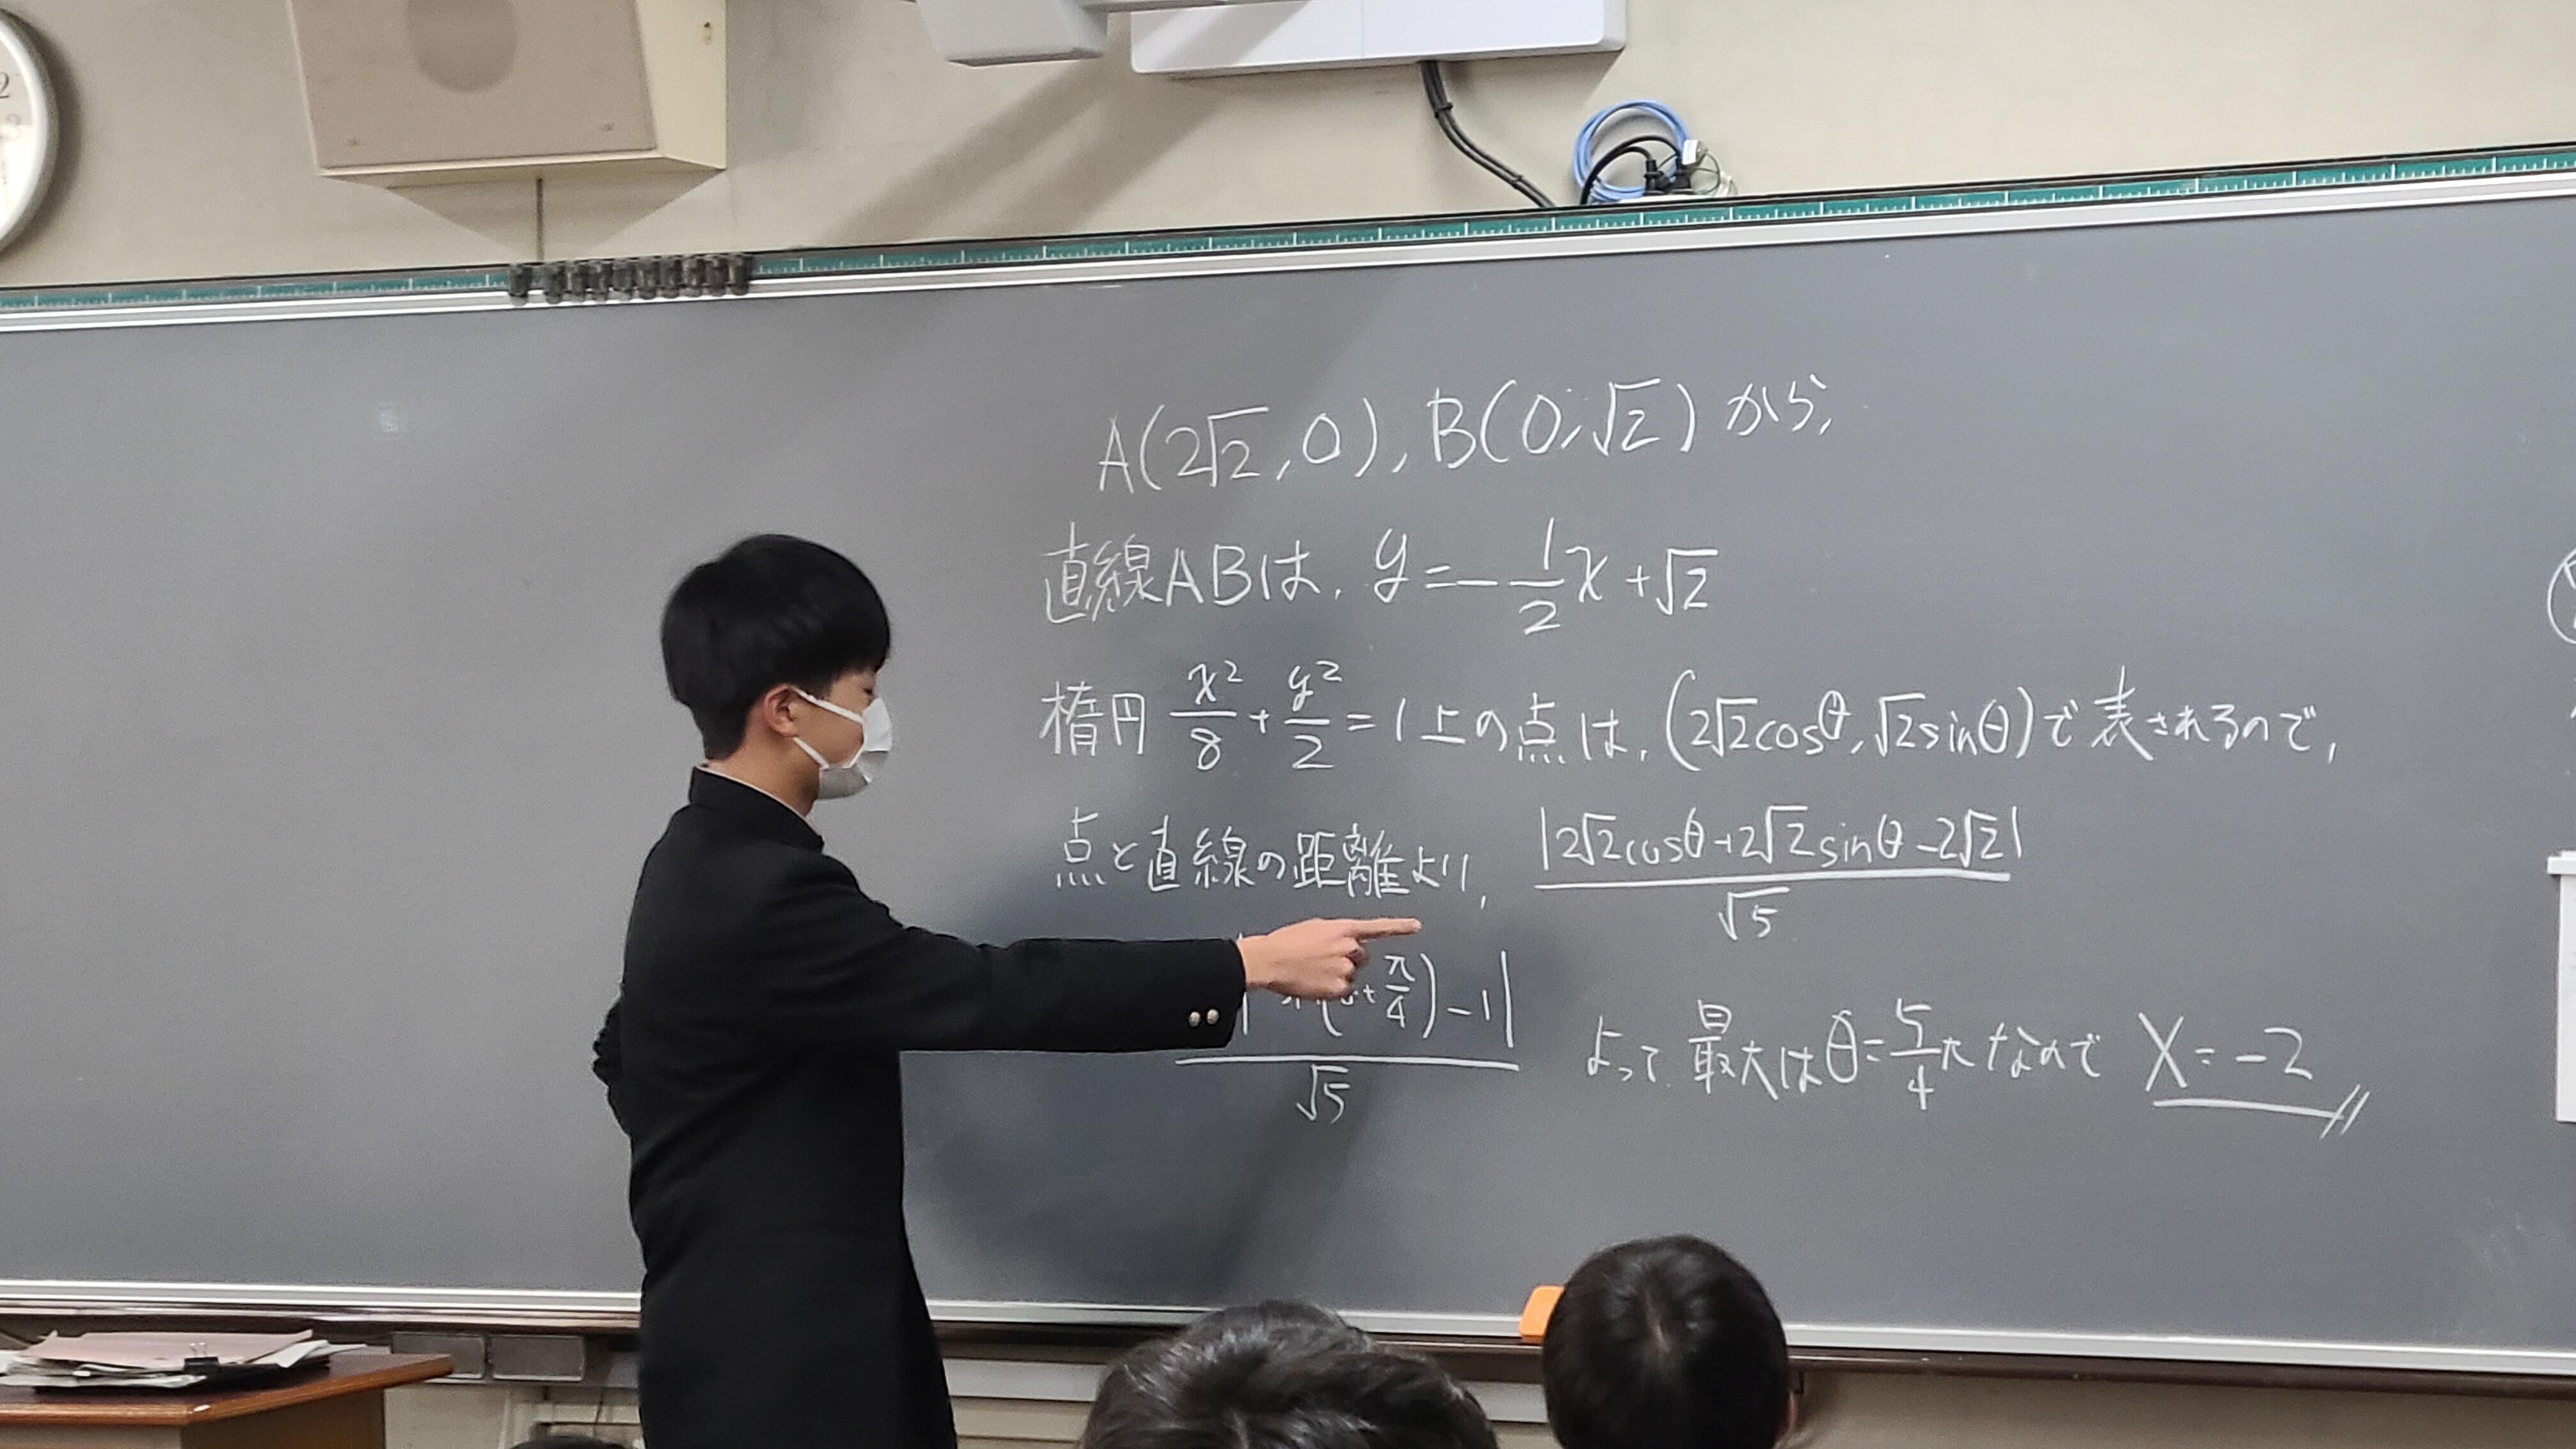 A(2√2, 0), B(0, √2) から,
直線ABは, y = -1/2 x + √2
楕円 x²/8 + y²/2 = 1 上の点は, (2√2cosθ, √2sinθ) で表されるので,
点と直線の距離より, |2√2cosθ+2√2sinθ-2√2| / √5
+ π/4) - 1| / √5 よって 最大は θ = 5/4 π なので X = -2